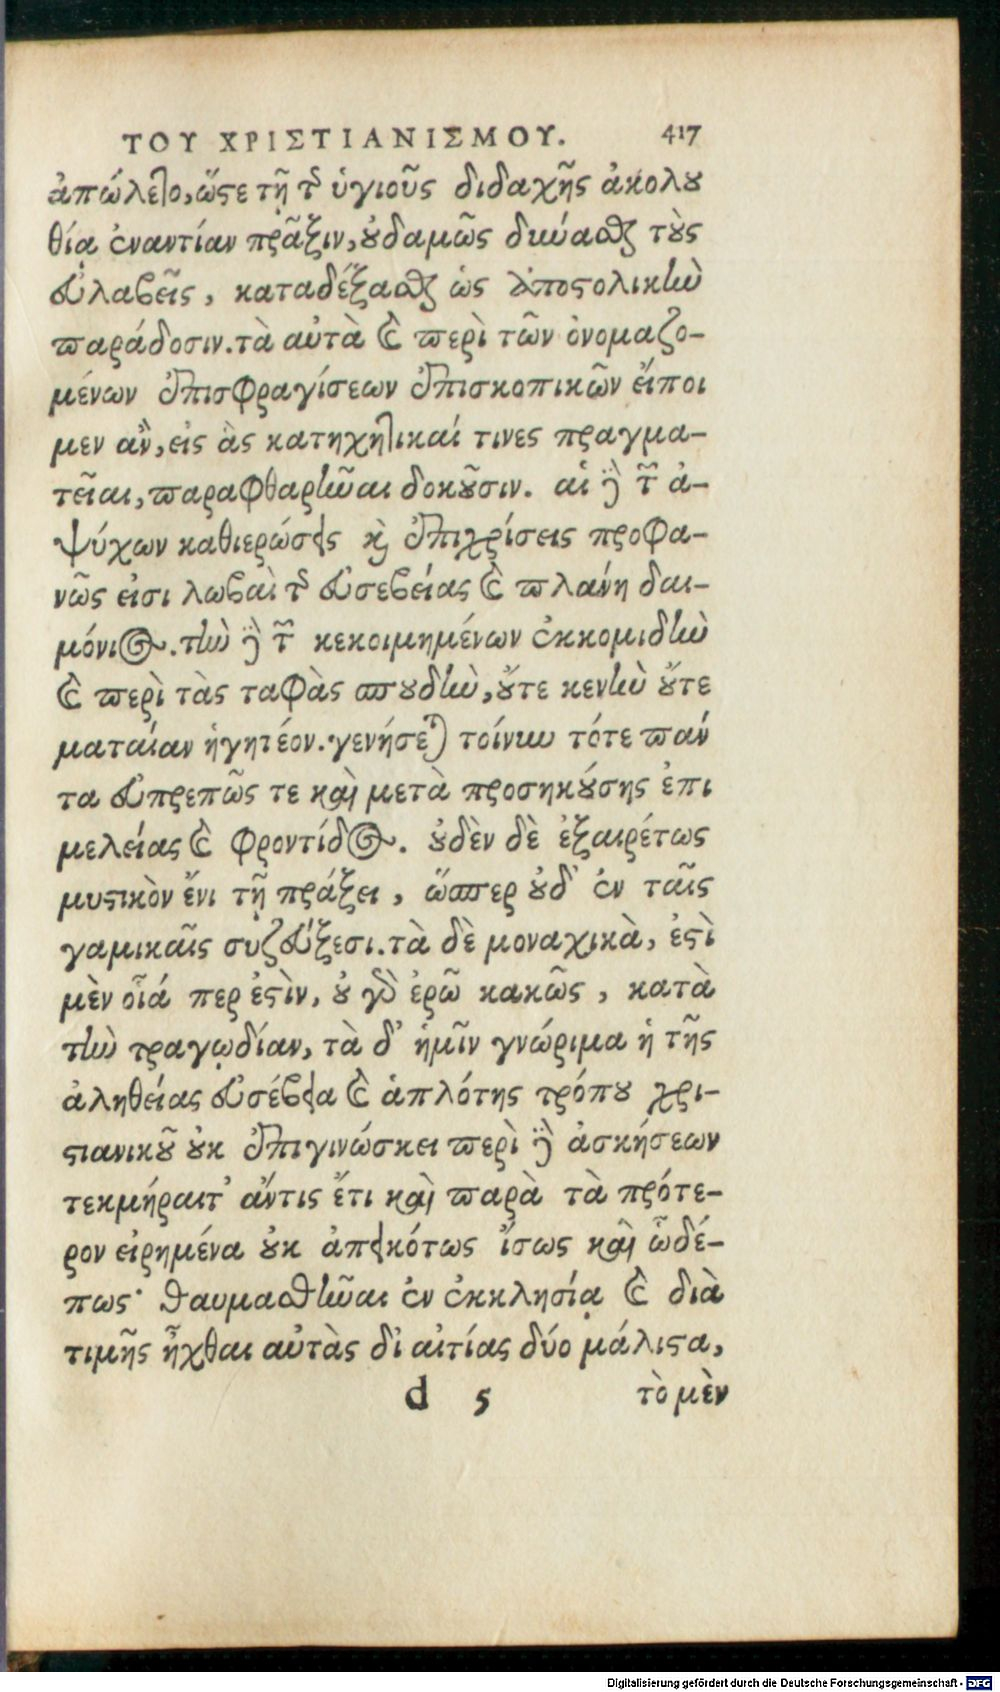 ΤΟΥ ΧΡΙΣΤΙΑΝΙΣΜΟΥ. 417
ἀπώλετο, ὥστε τῇ τῆς ὑγιοῦς διδαχῆς ἀκολου
θίᾳ ἐναντίαν πρᾶξιν, οὐδαμῶς δύνασθαι τοὺς
εὐλαβεῖς, καταδέξασθαι ὡς ἀποστολικὴν
παράδοσιν. τὰ αὐτὰ καὶ περὶ τῶν ὀνομαζο-
μένων ἐπισφραγίσεων ἐπισκοπικῶν εἴποι
μεν ἂν, εἰς ἃς κατηχητικαί τινες πραγμα-
τεῖαι, παραφθαρῆναι δοκοῦσιν. αἱ δὲ τῶν ἀ-
ψύχων καθιερώσεις καὶ ἐπιχρίσεις προφα-
νῶς εἰσι λωβαὶ τῆς εὐσεβείας καὶ πλάνη δαι-
μόνιος. τὴν δὲ τῶν κεκοιμημένων ἐκκομιδὴν
καὶ περὶ τὰς ταφὰς σπουδὴν, οὔτε κενὴν οὔτε
ματαίαν ἡγητέον. γενήσεται τοίνυν τότε πάν
τα εὐπρεπῶς τε καὶ μετὰ προσηκούσης ἐπι
μελείας καὶ φροντίδος. οὐδὲν δὲ ἐξαιρέτως
μυστικὸν ἔνι τῇ πράξει, ὥσπερ οὐδ' ἐν ταῖς
γαμικαῖς συζεύξεσι. τὰ δὲ μοναχικὰ, ἐστὶ
μὲν οἷά περ ἐστὶν, οὐ γὰρ ἐρῶ κακῶς, κατὰ
τὴν τραγῳδίαν, τὰ δ' ἡμῖν γνώριμα ἡ τῆς
ἀληθείας εὐσέβεια καὶ ἁπλότης τρόπου χρι-
στιανικοῦ οὐκ ἐπιγινώσκει περὶ δὲ ἀσκήσεων
τεκμήραιτ' ἄντις ἔτι καὶ παρὰ τὰ πρότε-
ρον εἰρημένα οὐκ ἀπεικότως ἴσως καὶ ὧδέ-
πως· θαυμασθῆναι ἐν ἐκκλησίᾳ καὶ διὰ
τιμῆς ἦχθαι αὐτὰς δι' αἰτίας δύο μάλιστα,
d 5 τὸ μὲν
Digitalisierung gefördert durch die Deutsche Forschungsgemeinschaft - DFG